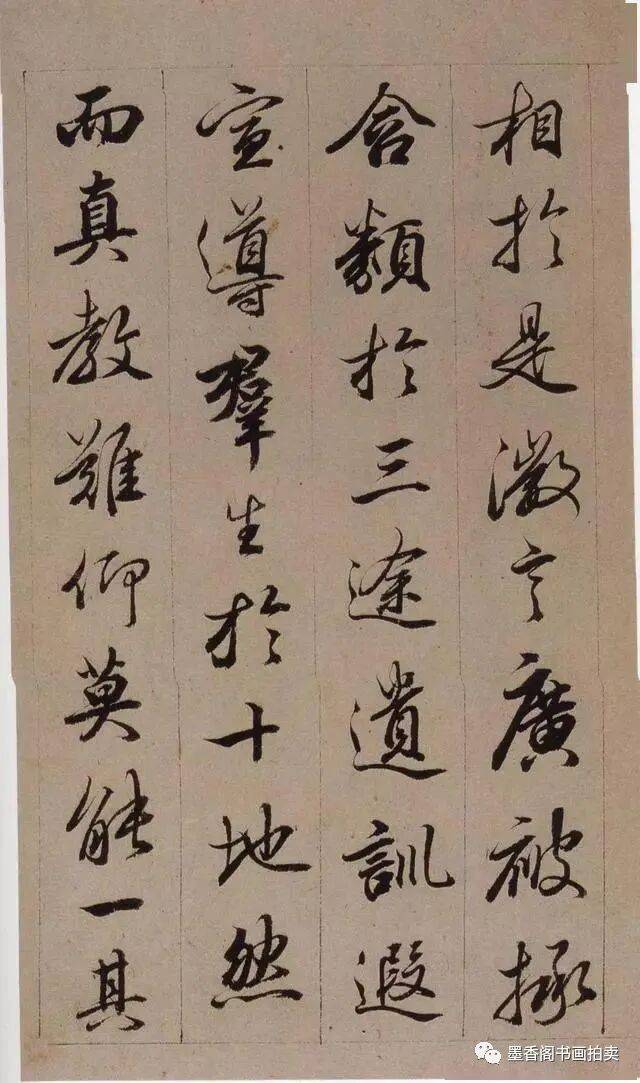 相於是微言廣被拯
含類於三途遺訓遐
宣導羣生於十地然
而真教難仰莫能一其
墨香阁书画拍卖